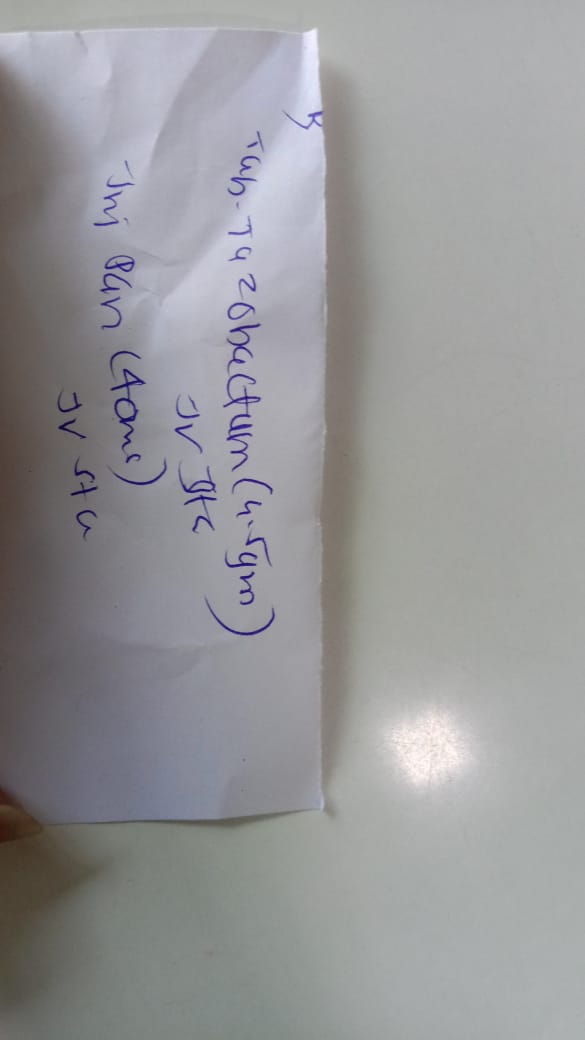 Tab-Tazobactum (4.5gm)
IV Sta
Inj Pan (40mg)
IV sta